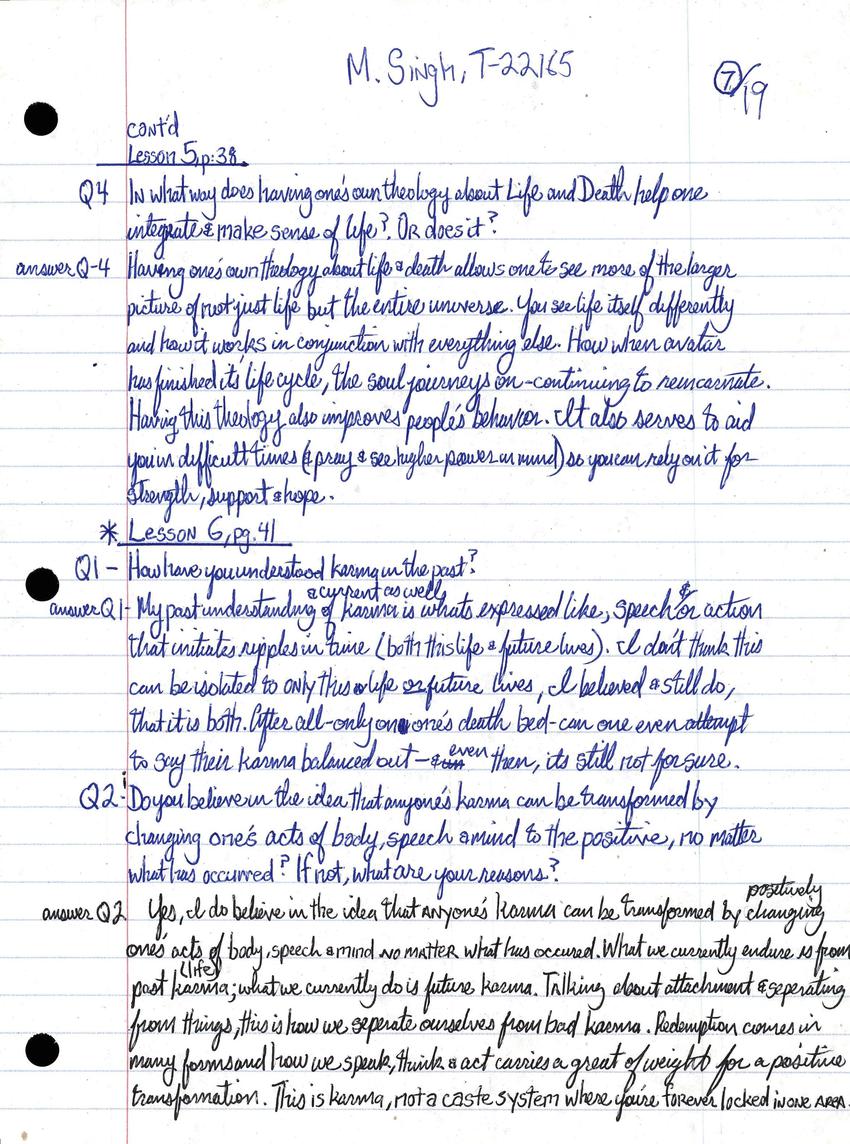 M. Singh, T-22165
7/19
cont'd
Lesson 5, p:38
Q4 In what way does having one's own theology about Life and Death help one
integrate & make sense of life? OR does it?
answer Q-4 Having one's own theology about life & death allows one to see more of the larger
picture of not just life but the entire universe. You see life itself differently
and how it works in conjunction with everything else. How when avatar
has finished its life cycle, the soul journeys on-continuing to reincarnate.
Having this theology also improves people's behavior. It also serves to aid
you in difficult times (& pray & see higher power in mind) so you can rely on it for
strength, support & hope.
* Lesson 6, pg. 41
Q1 - How have you understood karma in the past?
& current as well &
answer Q1- My past understanding of karma is whats expressed like, speech or action
that initiates ripples in time (both this life & future lives). I don't think this
can be isolated to only this life or future lives, I believed & still do,
that it is both. After all-only on one's death bed-can one even attempt
to say their karma balanced out - & even then, its still not for sure.
Q2: Do you believe in the idea that anyone's karma can be transformed by
changing one's acts of body, speech & mind to the positive, no matter
what has occurred? If not, what are your reasons?
positively
answer Q2 Yes, I do believe in the idea that anyone's karma can be transformed by changing
one's acts of body, speech & mind no matter what has occured. What we currently endure is from
(life)
past karma; what we currently do is future karma. Talking about attachment & seperating
from things, this is how we seperate ourselves from bad karma. Redemption comes in
many forms and how we speak, think & act carries a great of weight for a positive
transformation. This is karma, not a caste system where you're forever locked in one area.